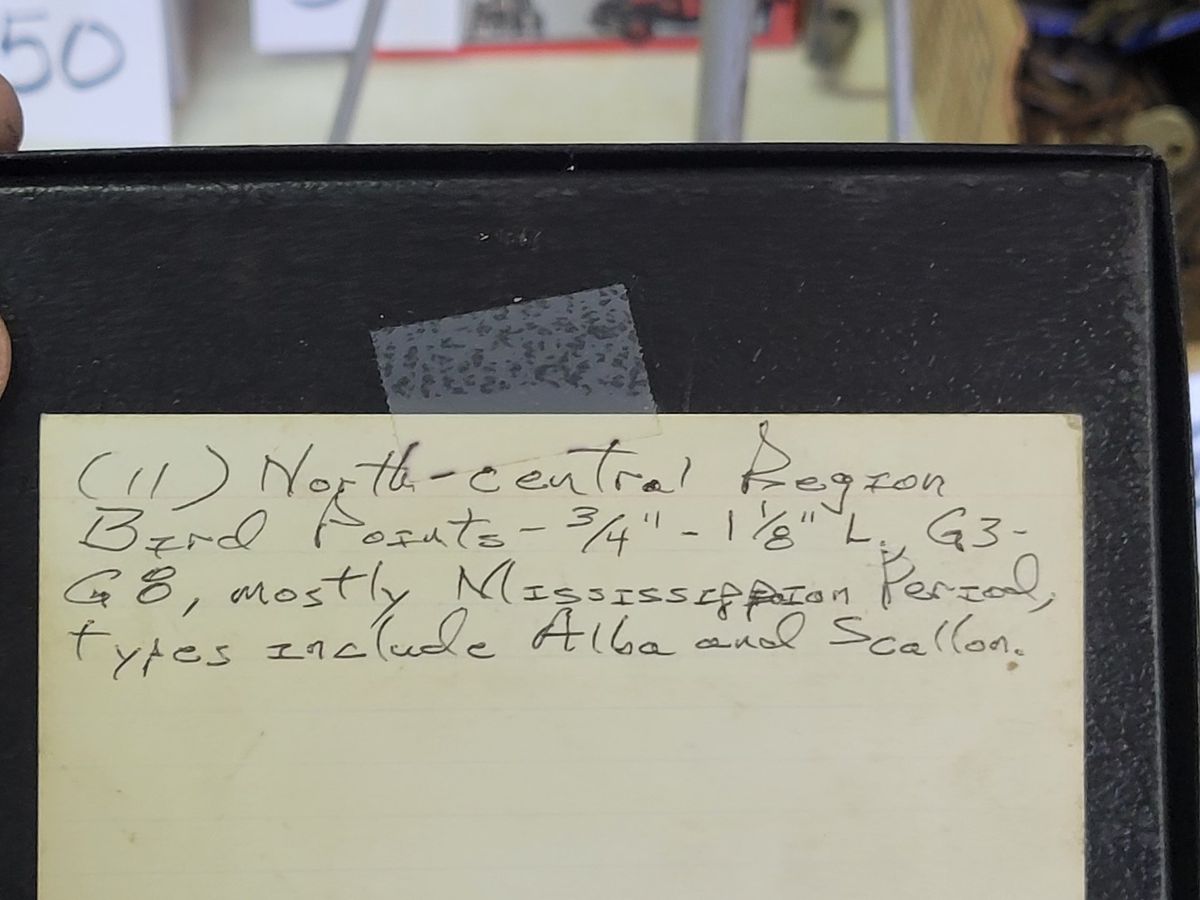 50
(11) North-central Region
Bird Points - 3/4" - 1 1/8" L. G3-
G8, mostly Mississippian Period,
types include Alba and Scallon.